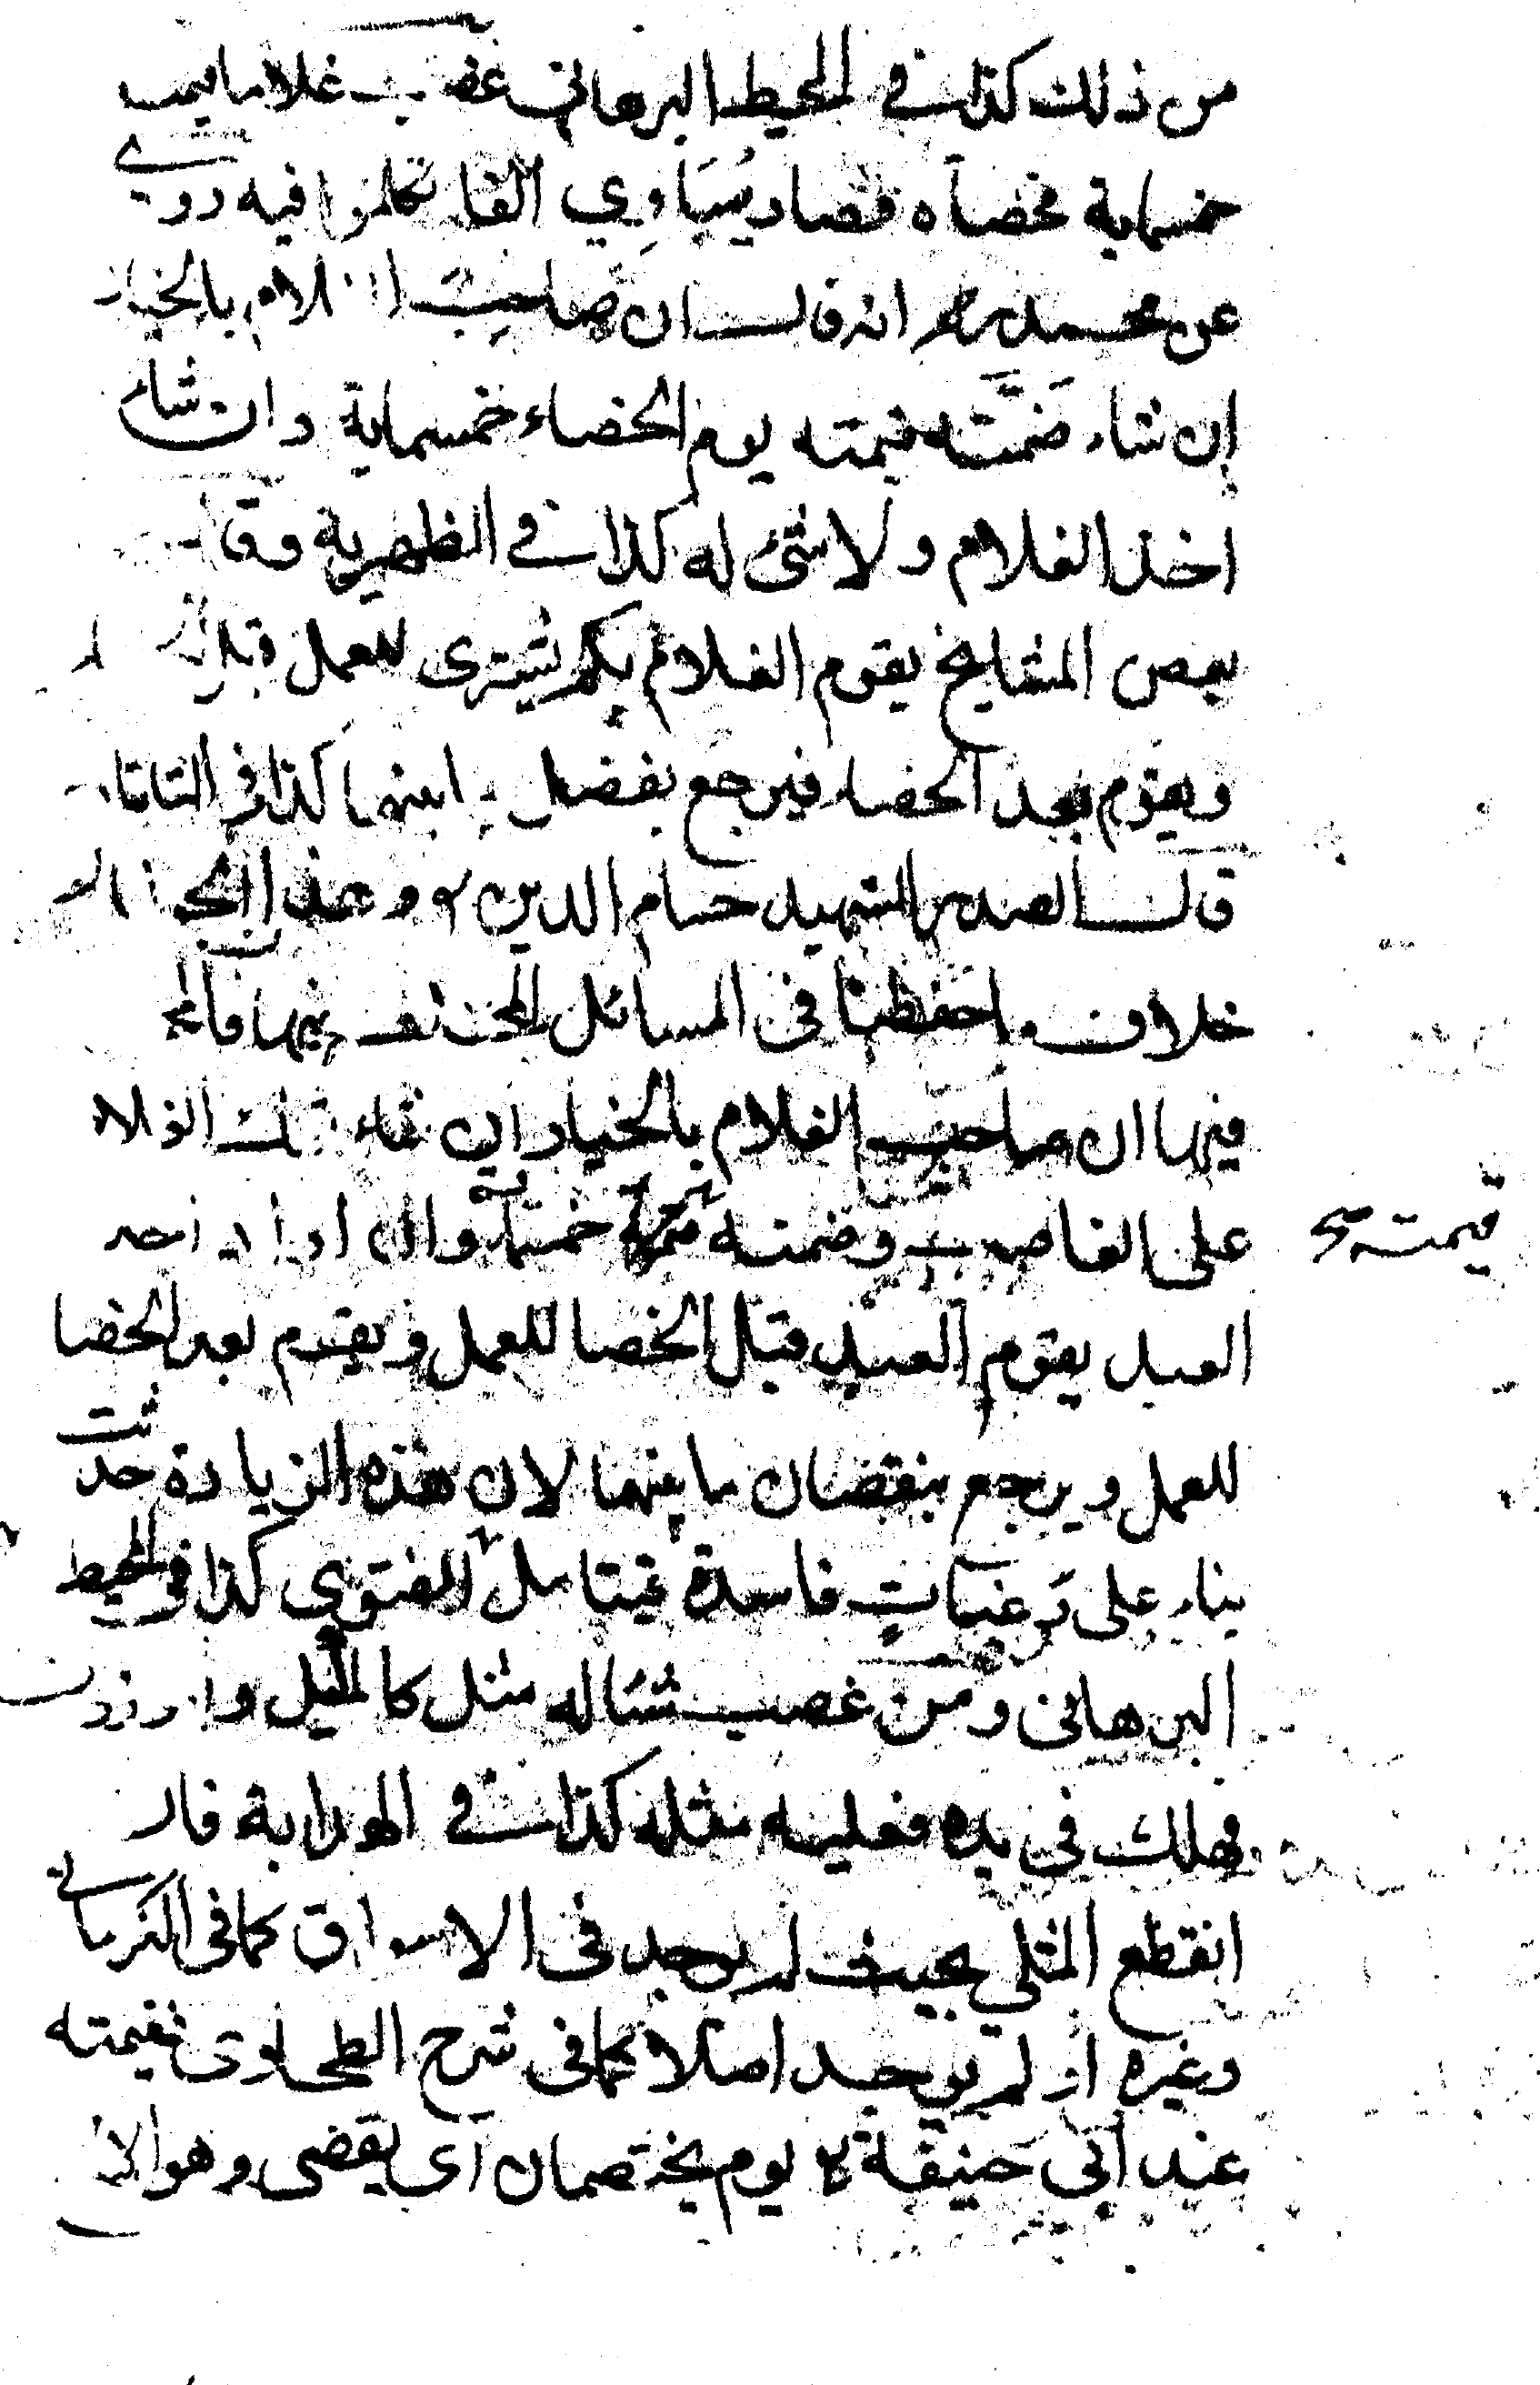 من ذلك كذا في المحيط البرهاني غصب غلاما قيمته
خمسماية فخصاه فصار يساوي الفا تكلموا فيه روي
عن محمد رح انه قال ان صاحب الغلام بالخيار
ان شاء ضمنه قيمته يوم الخصاء خمسماية وان شاء
اخذ الغلام ولا شئ له كذا في الظهيرية وقال
بعض المشايخ يقوم الغلام بكم يشترى للعمل قبل
ويقوم بعد الخصاء فيرجع بفضل ما بينهما كذا في
قال الصدر الشهيد حسام الدين رح وهذا
خلاف ما حفظنا في المسائل المختلف فيها
فيها ان صاحب الغلام بالخيار ان شاء ترك الغلام
على الغاصب وضمنه خمسماية وان اراد اخذ
قيمته صح
العبد يقوم العبد قبل الخصا للعمل ويقوم بعد الخصا
للعمل ويرجع بنقصان ما بينهما لان هذه الزيادة حدثت
بناء على رغبات فاسدة فيتامل للفتوي كذا في المحيط
البرهاني ومن غصب شئا له مثل كالمكيل والموزون
فهلك في يده فعليه مثله كذا في الهداية فان
انقطع المثلي بحيث لم يوجد في الاسواق كما في الكرماني
وغيره او لم يوجد اصلا كما في شرح الطحاوي فقيمته
عند ابي حنيفة رح يوم يختصمان اي يقضى وهو